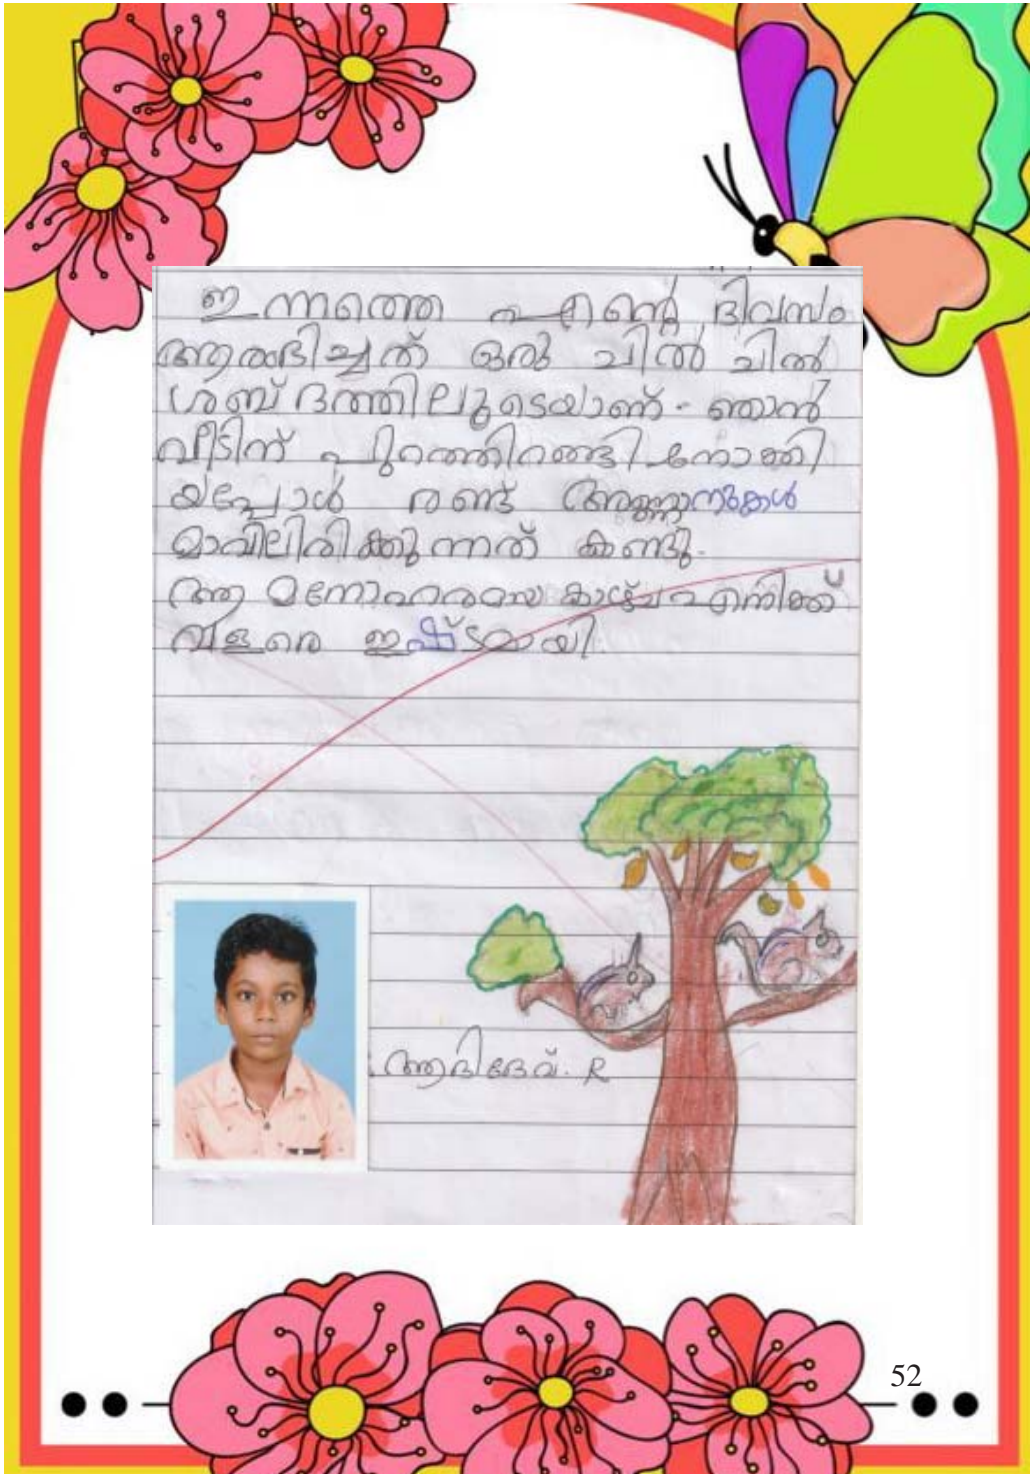 ഇന്നത്തെ എന്റെ ദിവസം
ആരംഭിച്ചത് ഒരു ചിൽ ചിൽ
ശബ്ദത്തിലൂടെയാണ്. ഞാൻ
വീടിന് പുറത്തിറങ്ങി നോക്കി
യപ്പോൾ രണ്ട് അണ്ണാനുകൾ
മാവിലിരിക്കുന്നത് കണ്ടു.
ആ മനോഹരമായ കാഴ്ച എനിക്ക്
വളരെ ഇഷ്ടമായി.
ആദിദേവ്. R
52